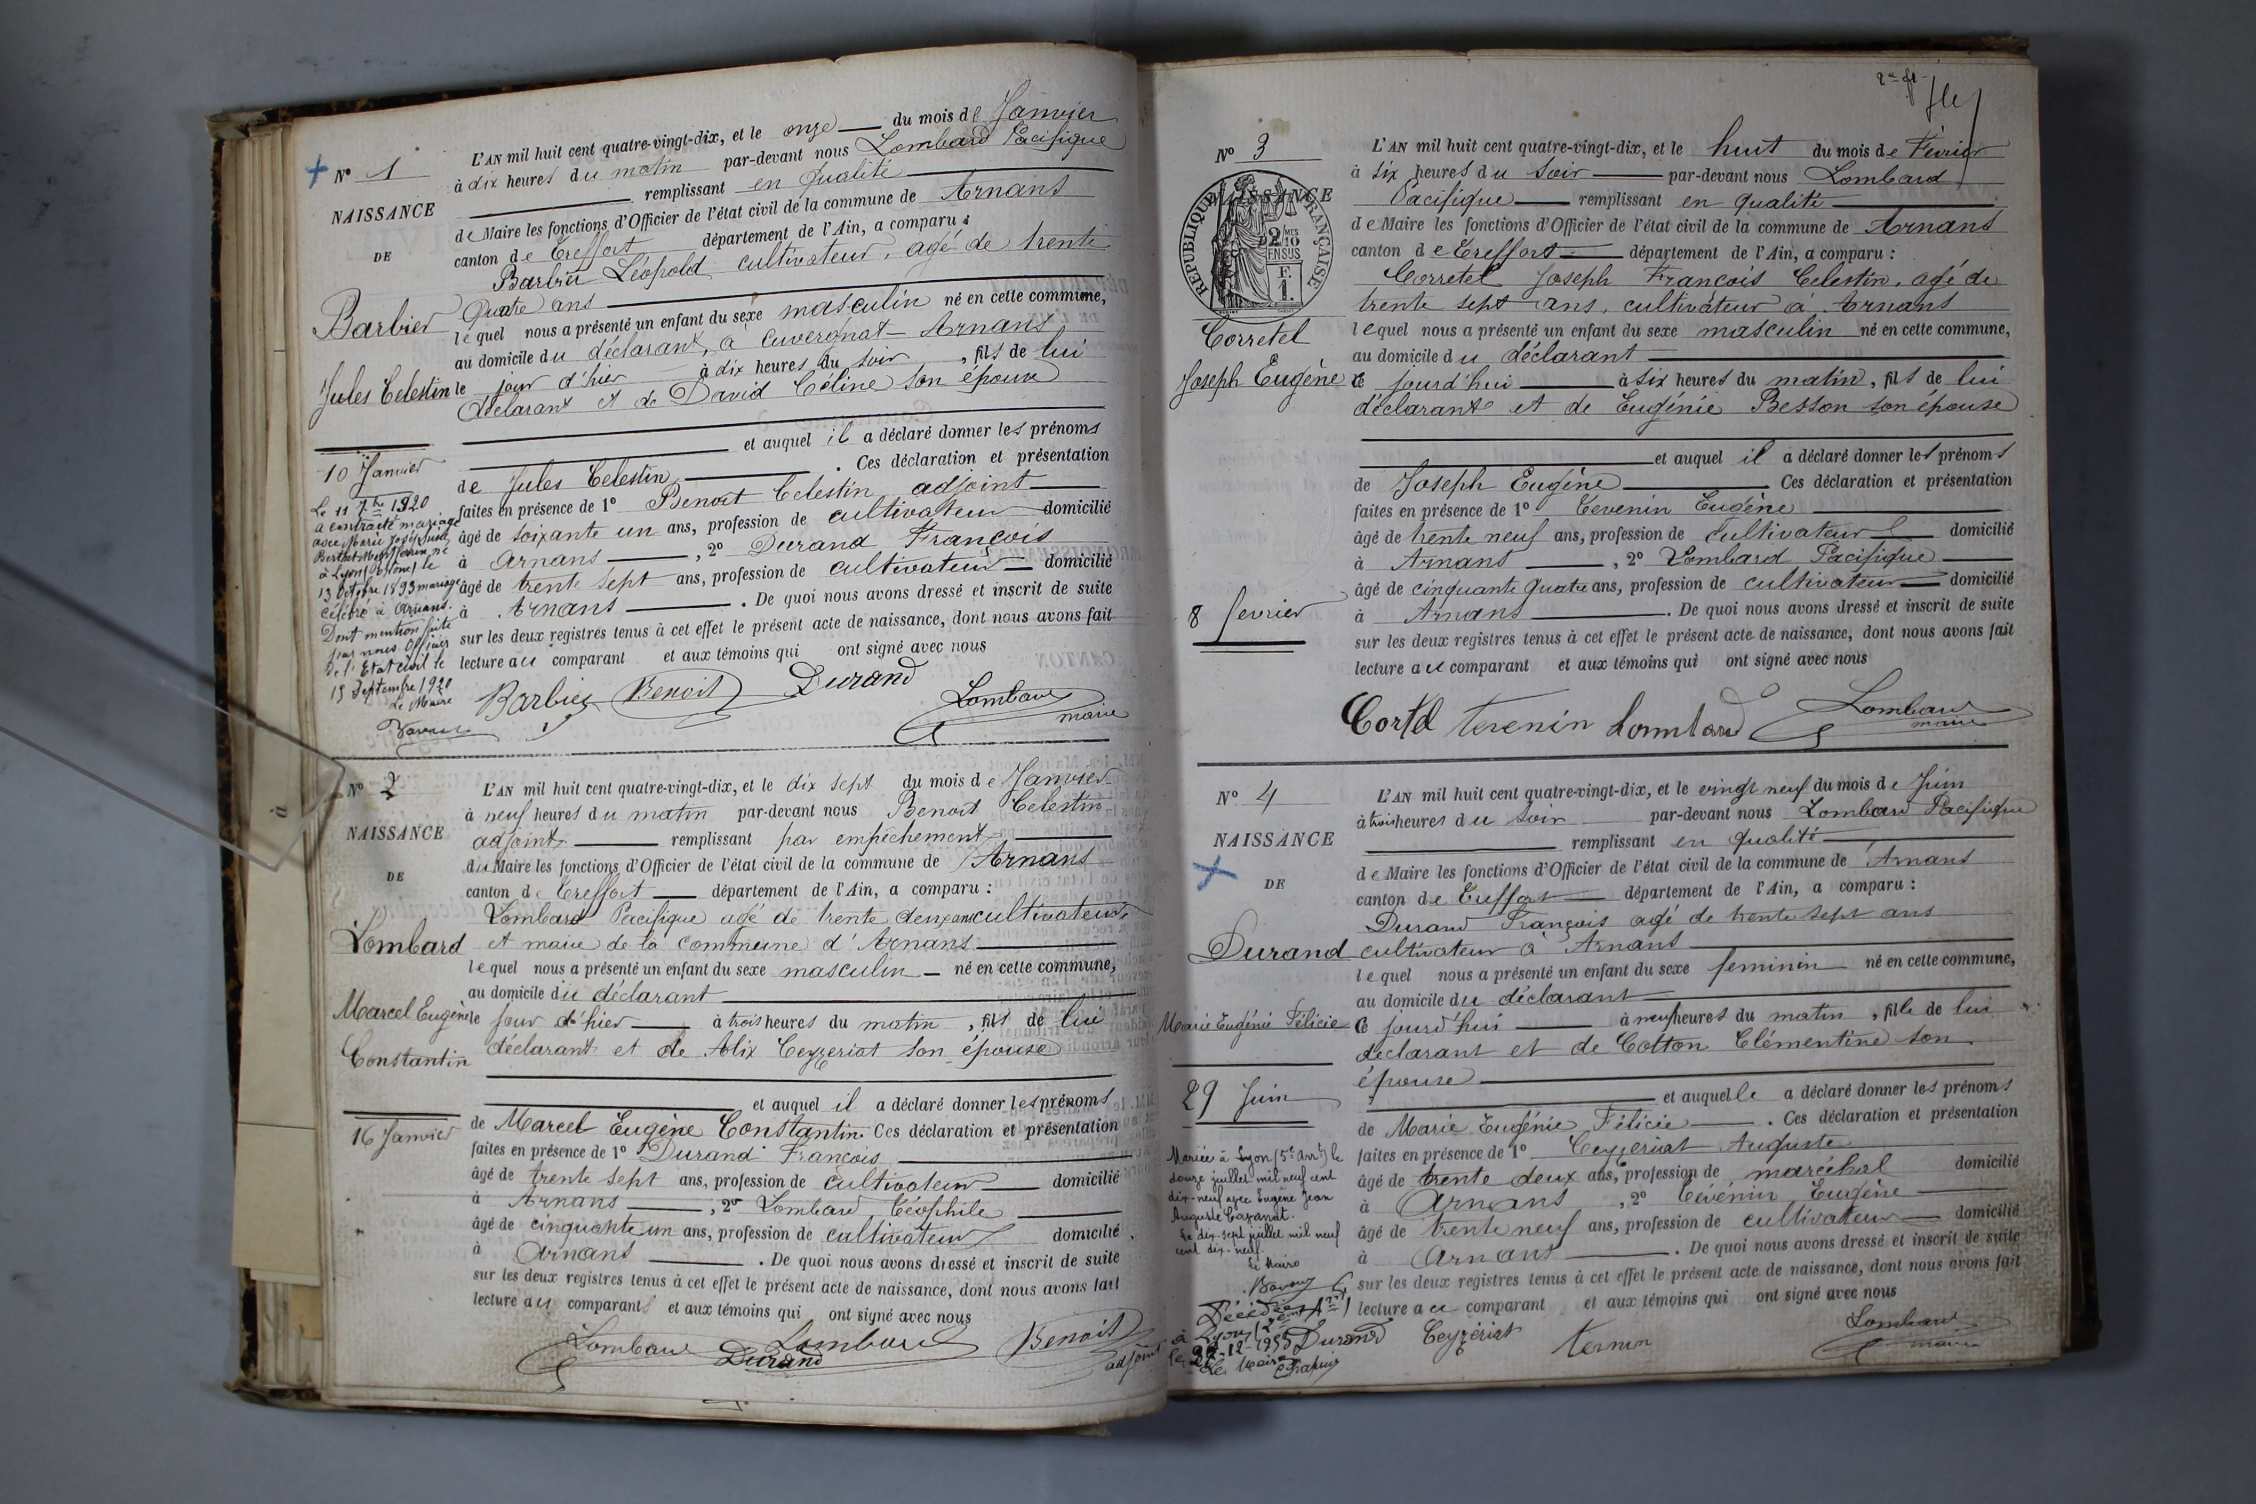 N° 1
NAISSANCE
DE
Barbier
Jules Celestin
10 Janvier
Le 11 7bre 1920
a contracté mariage
avec Marie Josephine
à Lyon (Rhône) le
13 Octobre 1893 mariage
célébré à Arnans.
Dont mention faite
par nous Officier
de l'Etat civil le
15 Septembre 1920
Le Maire
L'AN mil huit cent quatre-vingt-dix, et le onze du mois de Janvier
à dix heures du matin par-devant nous Lombard Pacifique
remplissant en qualité
de Maire les fonctions d'Officier de l'état civil de la commune de Arnans
canton de Treffort département de l'Ain, a comparu :
Barbier Léopold cultivateur, agé de trente
quatre ans
lequel nous a présenté un enfant du sexe masculin né en cette commune,
au domicile du déclarant, à Cuvergnat Arnans
le jour d'hier à dix heures du soir, fils de lui
déclarant et de David Céline son épouse
et auquel il a déclaré donner les prénoms
de Jules Celestin. Ces déclaration et présentation
faites en présence de 1° Benoit Celestin adjoint
âgé de soixante un ans, profession de cultivateur domicilié
à Arnans, 2° Durand François
âgé de trente sept ans, profession de cultivateur domicilié
à Arnans. De quoi nous avons dressé et inscrit de suite
sur les deux registres tenus à cet effet le présent acte de naissance, dont nous avons fait
lecture au comparant et aux témoins qui ont signé avec nous
Barbier Benoit Durand
Lombard
maire
N° 2
NAISSANCE
DE
Lombard
Marcel Eugène
Constantin
16 Janvier
L'AN mil huit cent quatre-vingt-dix, et le dix sept du mois de Janvier
à neuf heures du matin par-devant nous Benoit Celestin
adjoint remplissant par empêchement
du Maire les fonctions d'Officier de l'état civil de la commune de Arnans
canton de Treffort département de l'Ain, a comparu :
Lombard Pacifique agé de trente deux ans cultivateur
et maire de la commune d'Arnans
lequel nous a présenté un enfant du sexe masculin né en cette commune,
au domicile du déclarant
le jour d'hier à trois heures du matin, fils de lui
déclarant et de Alix Ceyzeriat son épouse
et auquel il a déclaré donner les prénoms
de Marcel Eugène Constantin. Ces déclaration et présentation
faites en présence de 1° Durand François
âgé de trente sept ans, profession de cultivateur domicilié
à Arnans, 2° Lombard Téophile
âgé de cinquante un ans, profession de cultivateur domicilié
à Arnans. De quoi nous avons dressé et inscrit de suite
sur les deux registres tenus à cet effet le présent acte de naissance, dont nous avons fait
lecture au comparant et aux témoins qui ont signé avec nous
Lombard Lombard Benoit
Durand adjoint
N° 3
NAISSANCE
RÉPUBLIQUE FRANÇAISE
2 MES
10
EN SUS
F.
1.
Corretel
Joseph Eugène
8 fevrier
L'AN mil huit cent quatre-vingt-dix, et le huit du mois de Février
à six heures du soir par-devant nous Lombard
Pacifique remplissant en qualité
de Maire les fonctions d'Officier de l'état civil de la commune de Arnans
canton de Treffort département de l'Ain, a comparu :
Corretel Joseph François Celestin, agé de
trente sept ans, cultivateur à Arnans
lequel nous a présenté un enfant du sexe masculin né en cette commune,
au domicile du déclarant
Ce jourd'hui à six heures du matin, fils de lui
déclarant et de Eugénie Besson son épouse
et auquel il a déclaré donner les prénoms
de Joseph Eugène Ces déclaration et présentation
faites en présence de 1° Tevenin Eugène
âgé de trente neuf ans, profession de cultivateur domicilié
à Arnans, 2° Lombard Pacifique
âgé de cinquante quatre ans, profession de cultivateur domicilié
à Arnans. De quoi nous avons dressé et inscrit de suite
sur les deux registres tenus à cet effet le présent acte de naissance, dont nous avons fait
lecture au comparant et aux témoins qui ont signé avec nous
Cortel tevenin Lombard Lombard
maire
N° 4
NAISSANCE
DE
Durand
Marie Eugénie Félicie
29 Juin
Mariée à Lyon (5e arrt) le
douze juillet mil neuf cent
dix-neuf avec Eugène Jean
Auguste Cazanat.
Le dix-sept juillet mil neuf
cent dix-neuf.
Le Maire
Décédée
à Lyon
Le Maire
L'AN mil huit cent quatre-vingt-dix, et le vingt neuf du mois de Juin
à trois heures du soir par-devant nous Lombard Pacifique
remplissant en qualité
de Maire les fonctions d'Officier de l'état civil de la commune de Arnans
canton de Treffort département de l'Ain, a comparu :
Durand François agé de trente sept ans
cultivateur à Arnans
lequel nous a présenté un enfant du sexe feminin né en cette commune,
au domicile du déclarant
Ce jourd'hui à neuf heures du matin, fille de lui
declarant et de Cotton Clémentine son
épouse
et auquelle a déclaré donner les prénoms
de Marie Eugénie Félicie. Ces déclaration et présentation
faites en présence de 1° Ceyzeriat Auguste
âgé de trente deux ans, profession de maréchal domicilié
à Arnans, 2° Tévénin Eugène
âgé de trente neuf ans, profession de cultivateur domicilié
à Arnans. De quoi nous avons dressé et inscrit de suite
sur les deux registres tenus à cet effet le présent acte de naissance, dont nous avons fait
lecture au comparant et aux témoins qui ont signé avec nous
Durand Ceyzériat Lombard
maire